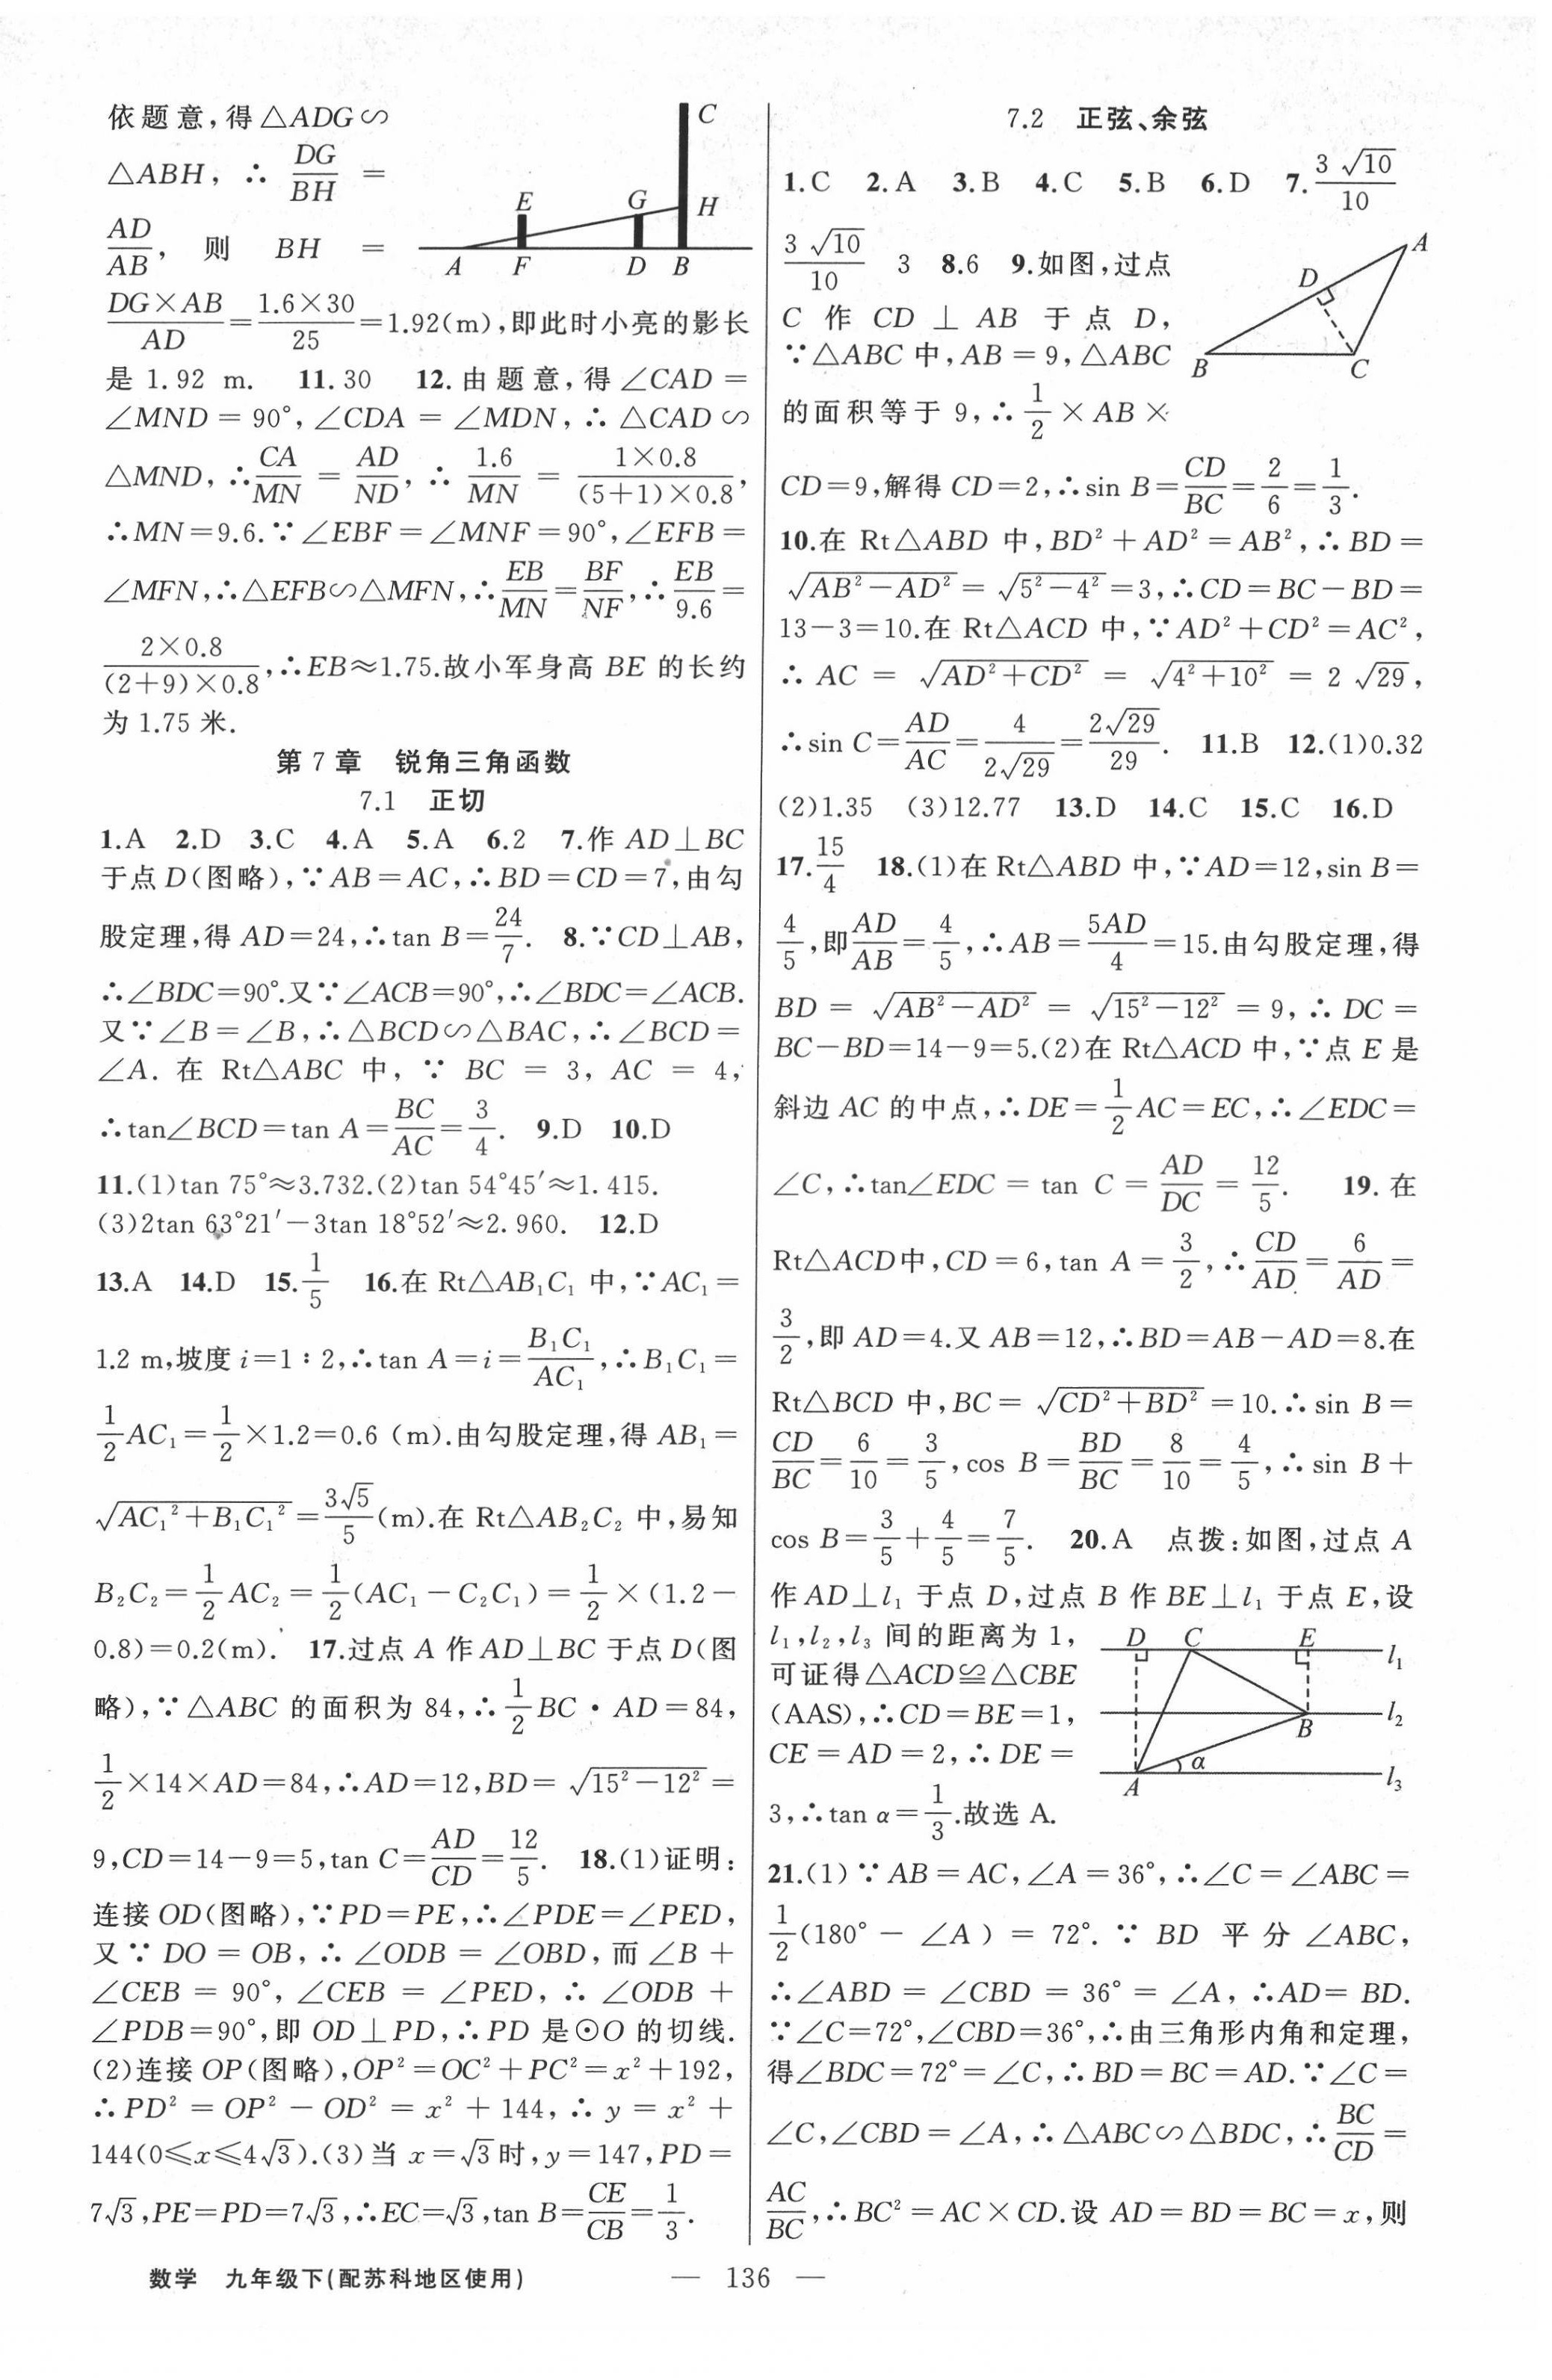 依题意,得△ADG∽
△ABH, ∴ DG/BH =
AD/AB, 则 BH =
DG×AB/AD=1.6×30/25=1.92(m),即此时小亮的影长
是 1.92 m. 11.30 12.由题意,得∠CAD=
∠MND=90°,∠CDA=∠MDN,∴△CAD∽
△MND,∴CA/MN=AD/ND,∴1.6/MN=1×0.8/((5+1)×0.8),
∴MN=9.6.∵∠EBF=∠MNF=90°,∠EFB=
∠MFN,∴△EFB∽△MFN,∴EB/MN=BF/NF,∴EB/9.6=
2×0.8/((2+9)×0.8),∴EB≈1.75.故小军身高 BE 的长约
为 1.75 米.
C
E
G
H
A
F
D
B
第 7 章 锐角三角函数
7.1 正切
1.A 2.D 3.C 4.A 5.A 6.2 7.作 AD⊥BC
于点 D(图略),∵AB=AC,∴BD=CD=7,由勾
股定理,得 AD=24,∴tan B=24/7. 8.∵CD⊥AB,
∴∠BDC=90°.又∵∠ACB=90°,∴∠BDC=∠ACB.
又∵∠B=∠B,∴△BCD∽△BAC,∴∠BCD=
∠A. 在 Rt△ABC 中, ∵ BC = 3, AC = 4,
∴tan∠BCD=tan A=BC/AC=3/4. 9.D 10.D
11.(1)tan 75°≈3.732.(2)tan 54°45′≈1.415.
(3)2tan 63°21′-3tan 18°52′≈2.960. 12.D
13.A 14.D 15.1/5 16.在 Rt△AB₁C₁ 中,∵AC₁=
1.2 m,坡度 i=1∶2,∴tan A=i=B₁C₁/AC₁,∴B₁C₁=
1/2AC₁=1/2×1.2=0.6 (m).由勾股定理,得 AB₁=
√(AC₁²+B₁C₁²)=3√5/5(m).在 Rt△AB₂C₂ 中,易知
B₂C₂=1/2AC₂=1/2(AC₁-C₂C₁)=1/2×(1.2-
0.8)=0.2(m). 17.过点 A 作 AD⊥BC 于点 D(图
略),∵△ABC 的面积为 84,∴1/2BC·AD=84,
1/2×14×AD=84,∴AD=12,BD=√(15²-12²)=
9,CD=14-9=5,tan C=AD/CD=12/5. 18.(1)证明:
连接 OD(图略),∵PD=PE,∴∠PDE=∠PED,
又∵DO=OB,∴∠ODB=∠OBD,而∠B+
∠CEB = 90°,∠CEB = ∠PED, ∴ ∠ODB +
∠PDB=90°,即 OD⊥PD,∴PD 是⊙O 的切线.
(2)连接 OP(图略),OP²=OC²+PC²=x²+192,
∴PD² = OP² - OD² = x² + 144, ∴ y = x² +
144(0≤x≤4√3).(3)当 x=√3时,y=147,PD=
7√3,PE=PD=7√3,∴EC=√3,tan B=CE/CB=1/3.
7.2 正弦、余弦
1.C 2.A 3.B 4.C 5.B 6.D 7.3√10/10
3√10/10 3 8.6 9.如图,过点
C 作 CD ⊥ AB 于点 D,
∵△ABC 中,AB=9,△ABC
的面积等于 9,∴1/2×AB×
CD=9,解得 CD=2,∴sin B=CD/BC=2/6=1/3.
A
D
B
C
10.在 Rt△ABD 中,BD²+AD²=AB²,∴BD=
√(AB²-AD²)=√(5²-4²)=3,∴CD=BC-BD=
13-3=10.在 Rt△ACD 中,∵AD²+CD²=AC²,
∴ AC = √(AD²+CD²) = √(4²+10²) = 2√29,
∴sin C=AD/AC=4/(2√29)=2√29/29. 11.B 12.(1)0.32
(2)1.35 (3)12.77 13.D 14.C 15.C 16.D
17.15/4 18.(1)在 Rt△ABD 中,∵AD=12,sin B=
4/5,即AD/AB=4/5,∴AB=5AD/4=15.由勾股定理,得
BD = √(AB²-AD²) = √(15²-12²) = 9, ∴ DC =
BC-BD=14-9=5.(2)在 Rt△ACD 中,∵点 E 是
斜边 AC 的中点,∴DE=1/2AC=EC,∴∠EDC=
∠C,∴tan∠EDC = tan C = AD/DC = 12/5. 19.在
Rt△ACD中,CD=6,tan A=3/2,∴CD/AD=6/AD=
3/2,即 AD=4.又 AB=12,∴BD=AB-AD=8.在
Rt△BCD 中,BC=√(CD²+BD²)=10.∴sin B=
CD/BC=6/10=3/5,cos B=BD/BC=8/10=4/5,∴sin B+
cos B=3/5+4/5=7/5. 20.A 点拨:如图,过点 A
作 AD⊥l₁ 于点 D,过点 B 作 BE⊥l₁ 于点 E,设
l₁,l₂,l₃ 间的距离为 1,
可证得△ACD≌△CBE
(AAS),∴CD=BE=1,
CE=AD=2,∴DE=
3,∴tan α=1/3.故选 A.
D
C
E
l₁
l₂
B
α
A
l₃
21.(1)∵AB=AC,∠A=36°,∴∠C=∠ABC=
1/2(180° - ∠A) = 72°. ∵ BD 平分 ∠ABC,
∴∠ABD = ∠CBD = 36° = ∠A, ∴AD= BD.
∵∠C=72°,∠CBD=36°,∴由三角形内角和定理,
得∠BDC=72°=∠C,∴BD=BC=AD.∵∠C=
∠C,∠CBD=∠A,∴△ABC∽△BDC,∴BC/CD=
AC/BC,∴BC²=AC×CD.设 AD=BD=BC=x,则
数学 九年级下(配苏科地区使用) — 136 —